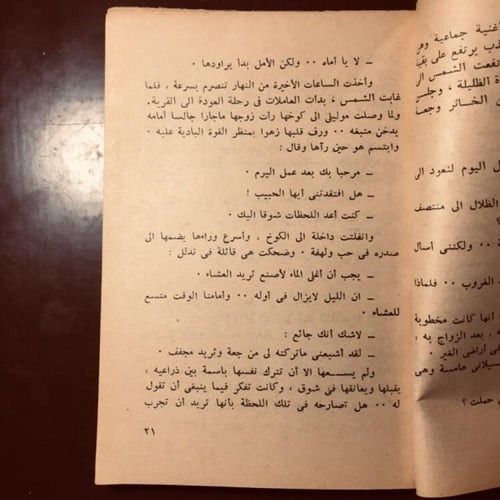 ـ لا يا أماه ٠٠ ولكن الأمل بدأ يراودها ٠
وأخذت الساعات الأخيرة من النهار تنصرم بسرعة ، فلما
غابت الشمس ، بدأت العاملات فى رحلة العودة الى القرية.
ولما وصلت موليلى الى كوخها رأت زوجها ماجارا جالسا أمامه
يدخن متبغه ٠٠ ورف قلبها زهوا بمنظر القوة البادية عليه ٠
وابتسم هو حين رآها وقال :
ـ مرحبا بك بعد عمل اليوم ٠
ـ هل افتقدتنى أيها الحبيب !
ـ كنت أعد اللحظات شوقا اليك ٠
وانفلتت داخلة الى الكوخ ، وأسرع وراءها يضمها الى
صدره فى حب ولهفة ٠ وضحكت هى قائلة فى تدلل :
ـ يجب أن أغلى الماء لأصنع ثريد العشاء ٠
ـ ان الليل لايزال فى أوله ٠٠ وأمامنا الوقت متسع
للعشاء ٠
ـ لاشك أنك جائع :
ـ لقد أشبعنى ماتركته لى من جعة وثريد مجفف ٠
ولم يسعها الا أن تترك نفسها باسمة بين ذراعيه ،
يقبلها ويعانقها فى شوق ، وكانت تفكر فيما ينبغى أن تقول
له ٠٠ هل تصارحه فى تلك اللحظة بأنها تريد أن تجرب
٢١
أغنية جماعية وهى
يرتفع على بقية
الشمس الى
الظليلة ، وجلسن
الخسائر وجعة
ل اليوم لنعود الى
الظلال الى منتصف
؟
ة ٠٠ ولكننى أسأل
الغروب ٠٠ فلماذا
أنها كانت مخطوبة
، بعد الزواج به ،
فى أراضى الغير ٠
هامسة وهى
حملت ؟